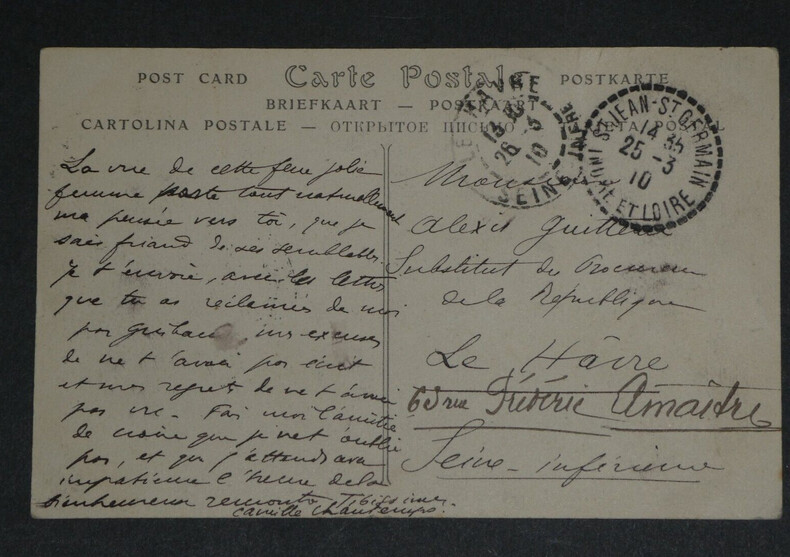 POST CARD Carte Postale POSTKARTE
BRIEFKAART — POSTKAART
CARTOLINA POSTALE — ОТКРЫТОЕ ПИСЬМО
LE HAVRE
13
26 - 3
10
SEINE INFRE
ST JEAN-ST GERMAIN
14 35
25 - 3
10
ET LOIRE
La vue de cette jolie
femme porte tout naturellement
ma pensée vers toi, que je
sais friand de ses semblables.
Je t'envoie, avec les lettres
que tu as réclamées de moi
par mes excuses
de ne t'avoir pas écrit
et mes regrets de ne t'avoir
pas vu - Fais moi l'amitié
de croire que je ne t'oublie
pas, et que j'attends avec
impatience l'heure de la
bienheureuse rencontre
Camille Chautemps.
Monsieur
Alexis
Substitut du Procureur
de la République
Le Hâvre
63 rue Frédéric Amaître
Seine-inférieure